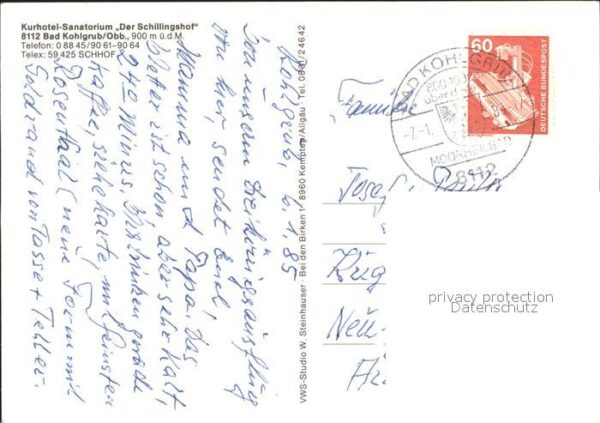 Kurhotel-Sanatorium „Der Schillingshof"
8112 Bad Kohlgrub/Obb., 900 m ü.d.M.
Telefon: 0 88 45/90 61-90 64
Telex: 59 425 SCHHOF
Kohlgrub, 6.1.85
Von unserem Dreikönigsausflug
von hier, sendet Euch,
Mamma und Papa. Das
Wetter ist schön, aber sehr kalt,
24° Minus. Wir trinken gerade
Kaffee, siehe Karte, mit feinsten
Rosenthal (neue Form mit
Goldrand von Tasse + Teller.
VWS-Studio W. Steinhauser · Bei den Birken 1 · 8960 Kempten/Allgäu · Tel. 0831/24642
60
DEUTSCHE BUNDESPOST
BAD KOHLGRUB
-7.-1.
MOORHEILB
8112
Familie
Josef
Krüg
Neu-
privacy protection
Datenschutz